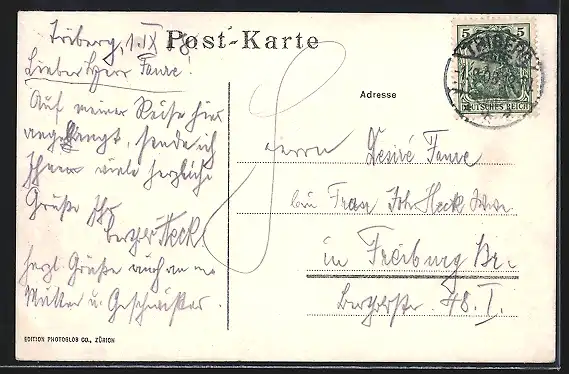 Triberg, 1. IX 08
Post-Karte
Lieber Herr Faure!
Auf meiner Reise hier
angelangt, sende ich
Ihnen viele herzliche
Grüße Ihr
Heck
herzl. Grüße auch an m.
Mutter u. Geschwister.
EDITION PHOTOGLOB CO., ZÜRICH
5 5
TRIBERG
DEUTSCHES REICH
Adresse
Herrn Desiré Faure
bei Frau Joh. Heck Wwe
in Freiburg Br.
48. I.